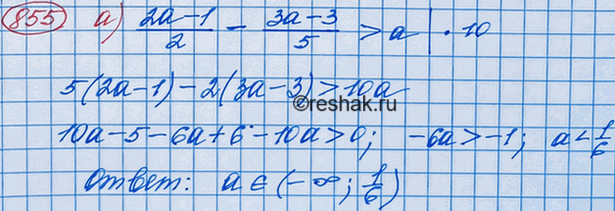 855 а) (2a-1)/2 - (3a-3)/5 > a | · 10
5(2a-1)-2(3a-3)>10a
©reshak.ru
10a-5-6a+6-10a>0; -6a>-1; a<1/6
Ответ: a∈(-∞; 1/6)